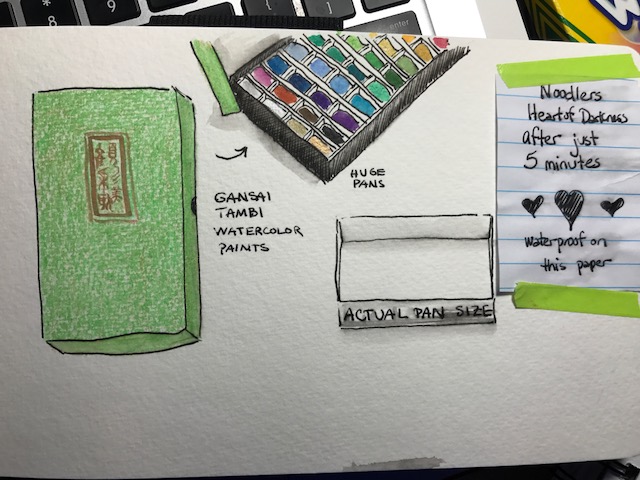 GANSAI
TAMBI
WATERCOLOR
PAINTS
HUGE
PANS
ACTUAL PAN SIZE
Noodlers
Heart of Darkness
after just
5 minutes
waterproof on
this paper
enter